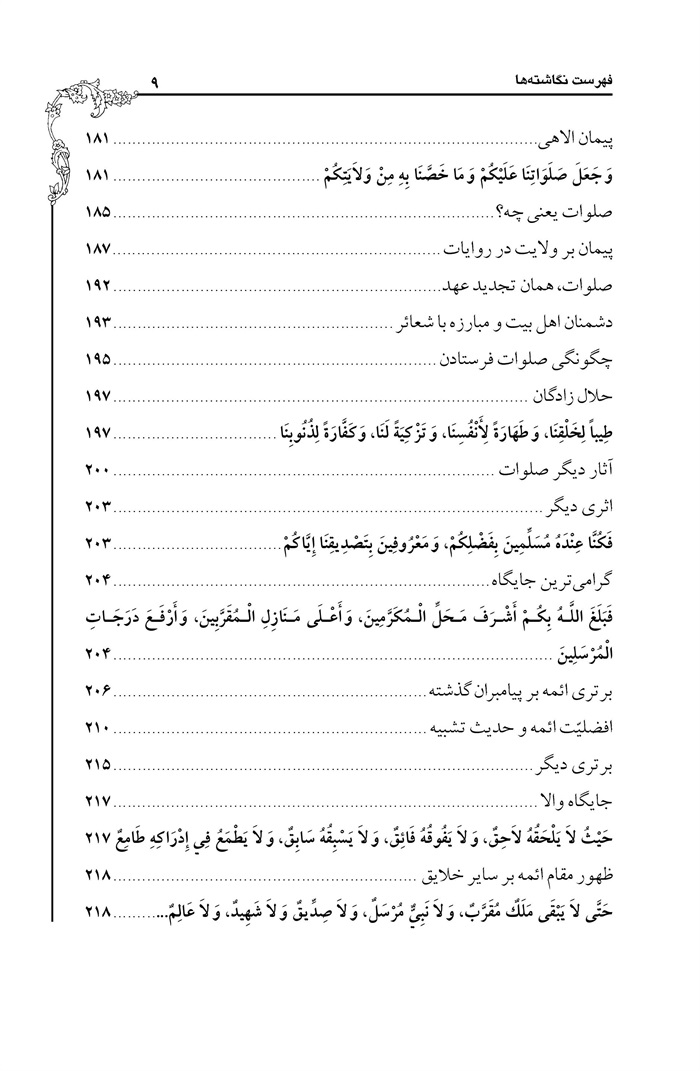 فهرست نگاشته‌ها ۹
پیمان الاهی ........ ۱۸۱
وَ جَعَلَ صَلَوَاتِنَا عَلَيْكُمْ وَ مَا خَصَّنَا بِهِ مِنْ وَلاَيَتِكُمْ ........ ۱۸۱
صلوات یعنی چه؟ ........ ۱۸۵
پیمان بر ولایت در روایات ........ ۱۸۷
صلوات، همان تجدید عهد ........ ۱۹۲
دشمنان اهل بیت و مبارزه با شعائر ........ ۱۹۳
چگونگی صلوات فرستادن ........ ۱۹۵
حلال زادگان ........ ۱۹۷
طِيباً لِخَلْقِنَا، وَ طَهَارَةً لِأَنْفُسِنَا، وَ تَزْكِيَةً لَنَا، وَ كَفَّارَةً لِذُنُوبِنَا ........ ۱۹۷
آثار دیگر صلوات ........ ۲۰۰
اثری دیگر ........ ۲۰۳
فَكُنَّا عِنْدَهُ مُسَلِّمِينَ بِفَضْلِكُمْ، وَ مَعْرُوفِينَ بِتَصْدِيقِنَا إِيَّاكُمْ ........ ۲۰۳
گرامی‌ترین جایگاه ........ ۲۰۴
فَبَلَغَ اللَّـهُ بِكُمْ أَشْرَفَ مَحَلِّ الْمُكَرَّمِينَ، وَ أَعْلَى مَنَازِلِ الْمُقَرَّبِينَ، وَ أَرْفَعَ دَرَجَاتِ
الْمُرْسَلِينَ ........ ۲۰۴
برتری ائمه بر پیامبران گذشته ........ ۲۰۶
افضلیّت ائمه و حدیث تشبیه ........ ۲۱۰
برتری دیگر ........ ۲۱۵
جایگاه والا ........ ۲۱۷
حَيْثُ لاَ يَلْحَقُهُ لاَحِقٌ، وَ لاَ يَفُوقُهُ فَائِقٌ، وَ لاَ يَسْبِقُهُ سَابِقٌ، وَ لاَ يَطْمَعُ فِي إِدْرَاكِهِ طَامِعٌ ۲۱۷
ظهور مقام ائمه بر سایر خلایق ........ ۲۱۸
حَتَّى لاَ يَبْقَى مَلَكٌ مُقَرَّبٌ، وَ لاَ نَبِيٌّ مُرْسَلٌ، وَ لاَ صِدِّيقٌ وَ لاَ شَهِيدٌ، وَ لاَ عَالِمٌ... ........ ۲۱۸